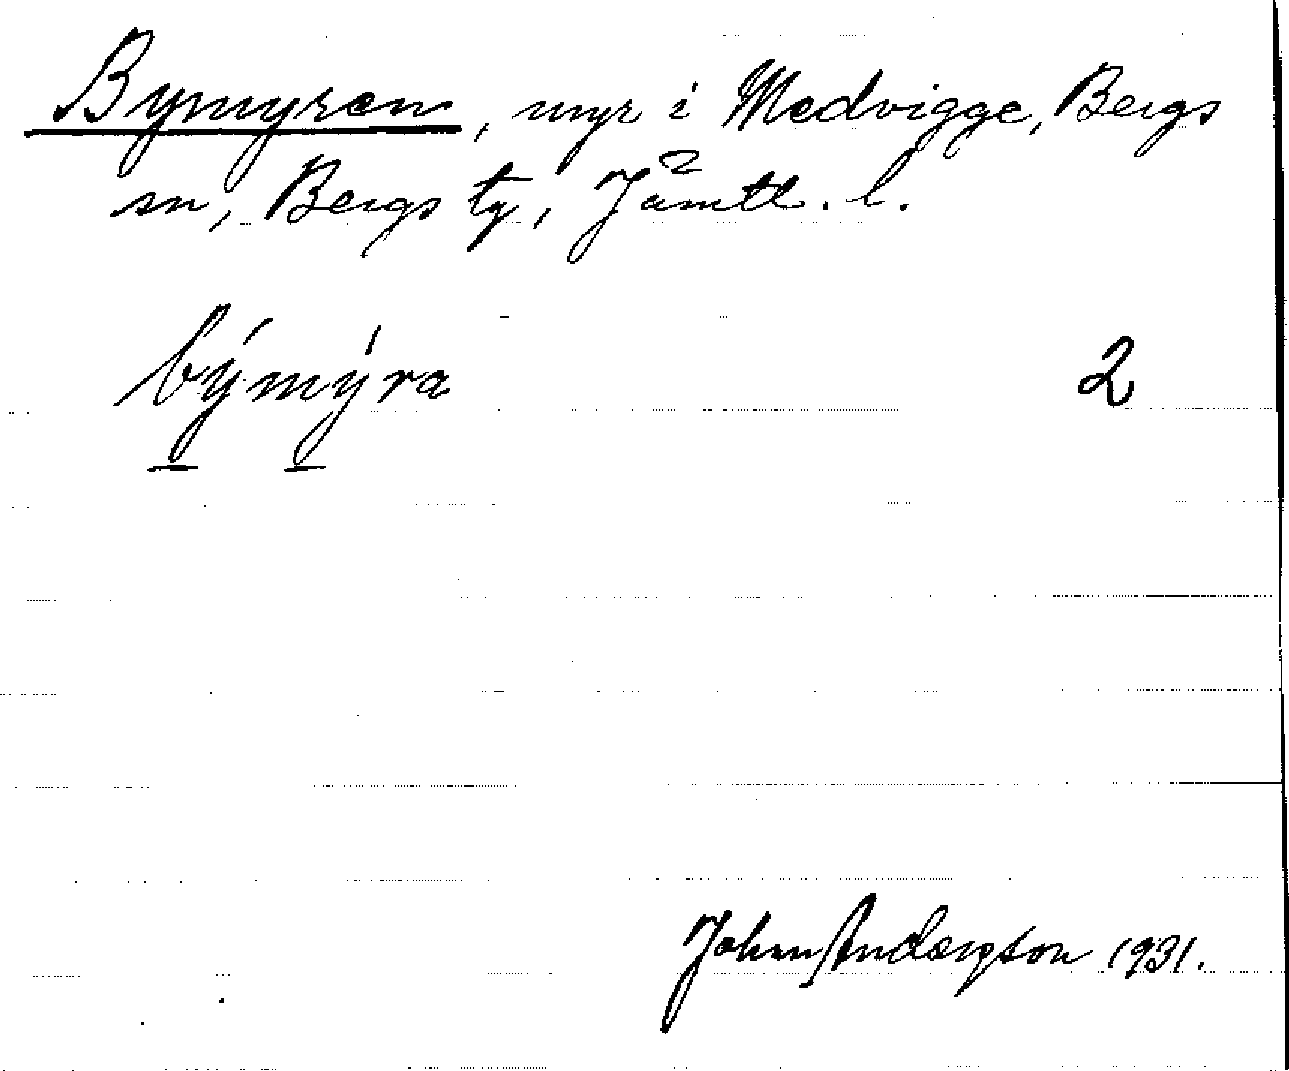 Bymyren, myr i Medvigge, Bergs
sn, Bergs tg, Jämtl. l.
býmýra 2
John Anderson 1931.